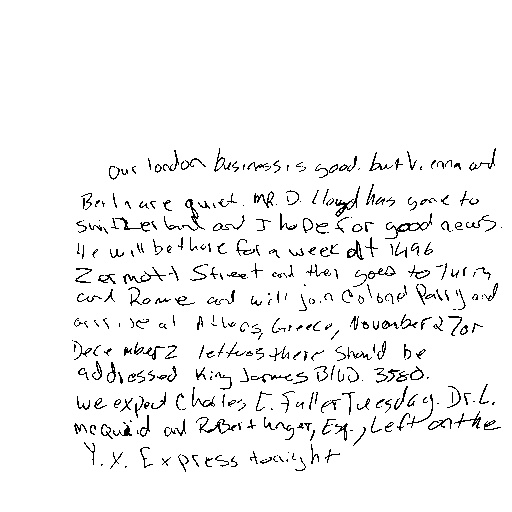 Our london business is good. but Vienna and
Berln are quiet. MR. D. Lloyd has gone to
switzerland and I hope for good news.
He will be there for a week at 1496
Zermott Street and then goes to Turin
and Rome and will join Colonel Parry and
arrive at Athens, Greece, November 27 or
December 2 letters there should be
addressed King James Blvd. 3580.
we expect Charles E. Fuller Tuesday. Dr. L.
McQuaid and Robert Unger, Esq., Left on the
Y.X. Express tonight